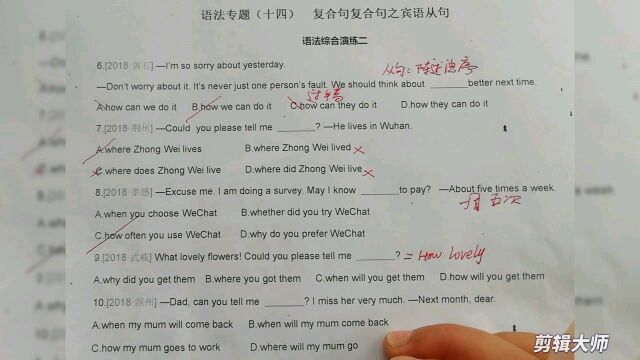 语法专题（十四） 复合句复合句之宾语从句
语法综合演练二
6.[2018·黄石] —I'm so sorry about yesterday.
从句：陈述语序
—Don't worry about it. It's never just one person's fault. We should think about ______better next time.
过错
A.how can we do it B.how we can do it C.how can they do it D.how they can do it
7.[2018·荆州] —Could you please tell me ______? —He lives in Wuhan.
A.where Zhong Wei lives B.where Zhong Wei lived ×
C.where does Zhong Wei live D.where did Zhong Wei live ×
8.[2018·孝感] —Excuse me. I am doing a survey. May I know ______to pay? —About five times a week.
A.when you choose WeChat B.whether did you try WeChat
一周五次
C.how often you use WeChat D.why do you prefer WeChat
9.[2018·武威] What lovely flowers! Could you please tell me ______? = How lovely
A.why did you get them B.where you got them C.when will you get them D.how will you get them
10.[2018·滨州] —Dad, can you tell me ______? I miss her very much. —Next month, dear.
A.when my mum will come back B.when will my mum come back
C.how my mum goes to work D.where will my mum go
剪辑大师